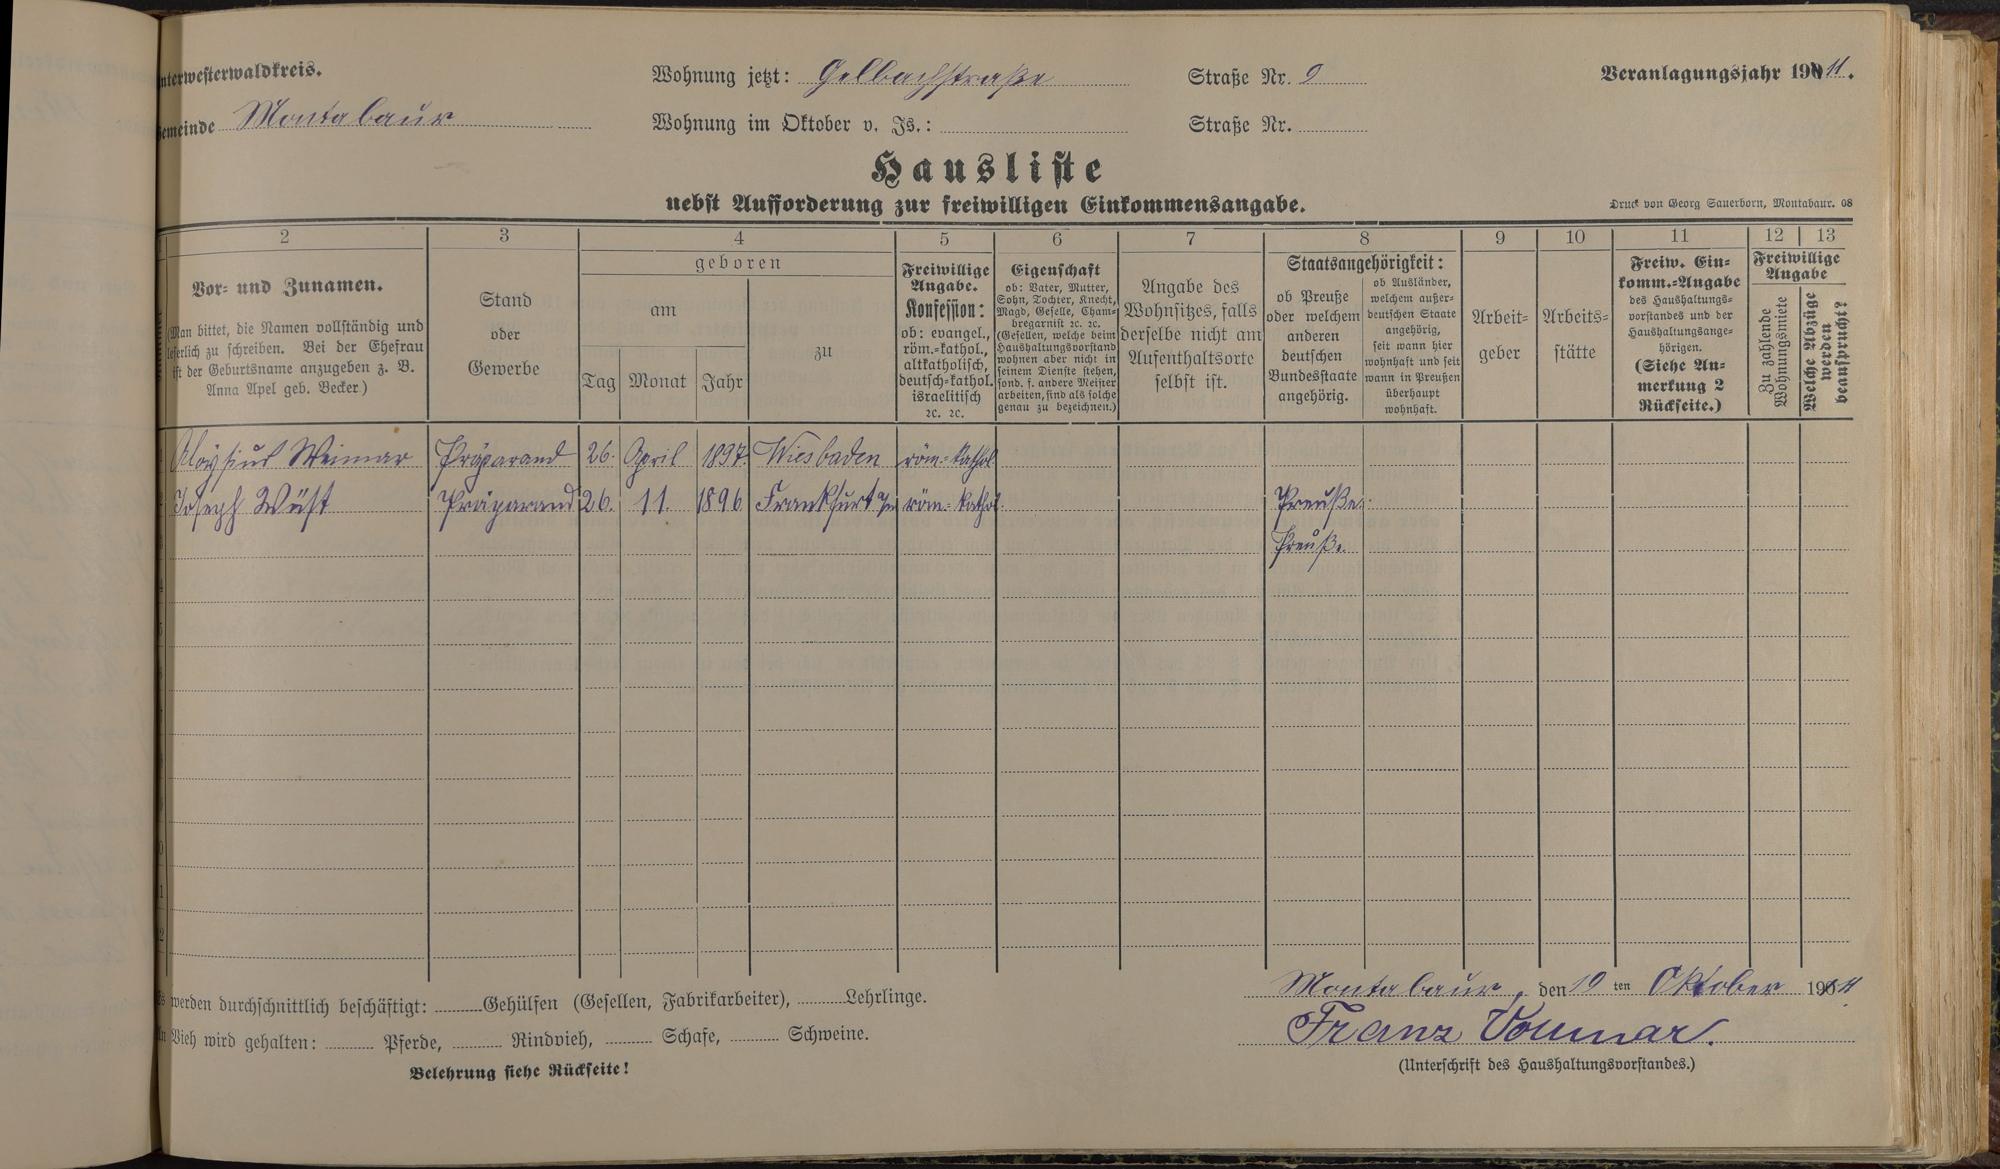 nterwesterwaldkreis.
Wohnung jetzt: Gelbachstraße
Straße Nr. 9
Veranlagungsjahr 1911.
emeinde Montabaur
Wohnung im Oktober v. Js.:
Straße Nr.
Hausliste
nebst Aufforderung zur freiwilligen Einkommensangabe.
Druck von Georg Sauerborn, Montabaur. 08
2
3
4
5
6
7
8
9
10
11
12
13
Vor- und Zunamen.
(Man bittet, die Namen vollständig und
leserlich zu schreiben. Bei der Ehefrau
ist der Geburtsname anzugeben z. B.
Anna Apel geb. Becker.)
Stand
oder
Gewerbe
geboren
am
Tag
Monat
Jahr
zu
Freiwillige
Angabe.
Konfession:
ob: evangel.,
röm.-kathol.,
altkatholisch,
deutsch-kathol.
israelitisch
ꝛc. ꝛc.
Eigenschaft
ob: Vater, Mutter,
Sohn, Tochter, Knecht,
Magd, Geselle, Cham-
bregarnist ꝛc. ꝛc.
(Gesellen, welche beim
Haushaltungsvorstand
wohnen aber nicht in
seinem Dienste stehen,
sond. f. andere Meister
arbeiten, sind als solche
genau zu bezeichnen.)
Angabe des
Wohnsitzes, falls
derselbe nicht am
Aufenthaltsorte
selbst ist.
Staatsangehörigkeit:
ob Preuße
oder welchem
anderen
deutschen
Bundesstaate
angehörig.
ob Ausländer,
welchem außer-
deutschen Staate
angehörig,
seit wann hier
wohnhaft und seit
wann in Preußen
überhaupt
wohnhaft.
Arbeit-
geber
Arbeits-
stätte
Freiw. Ein-
komm.-Angabe
des Haushaltungs-
vorstandes und der
Haushaltungsange-
hörigen.
(Siehe An-
merkung 2
Rückseite.)
Freiwillige
Angabe
Zu zahlende
Wohnungsmiete
Welche Abzüge
werden
beansprucht?
Aloysius Weimar Präparand 26. April 1897. Wiesbaden röm.-kathol.
2 Joseph Wüst Präparand 26. 11. 1896 Frankfurt a/M röm.-kathol. Preuße.
3 Preuße.
4
5
6
7
8
9
0
1
2
werden durchschnittlich beschäftigt: Gehülfen (Gesellen, Fabrikarbeiter), Lehrlinge.
Vieh wird gehalten: Pferde, Rindvieh, Schafe, Schweine.
Belehrung siehe Rückseite!
Montabaur, den 19 ten Oktober 1911
Franz Vollmar.
(Unterschrift des Haushaltungsvorstandes.)